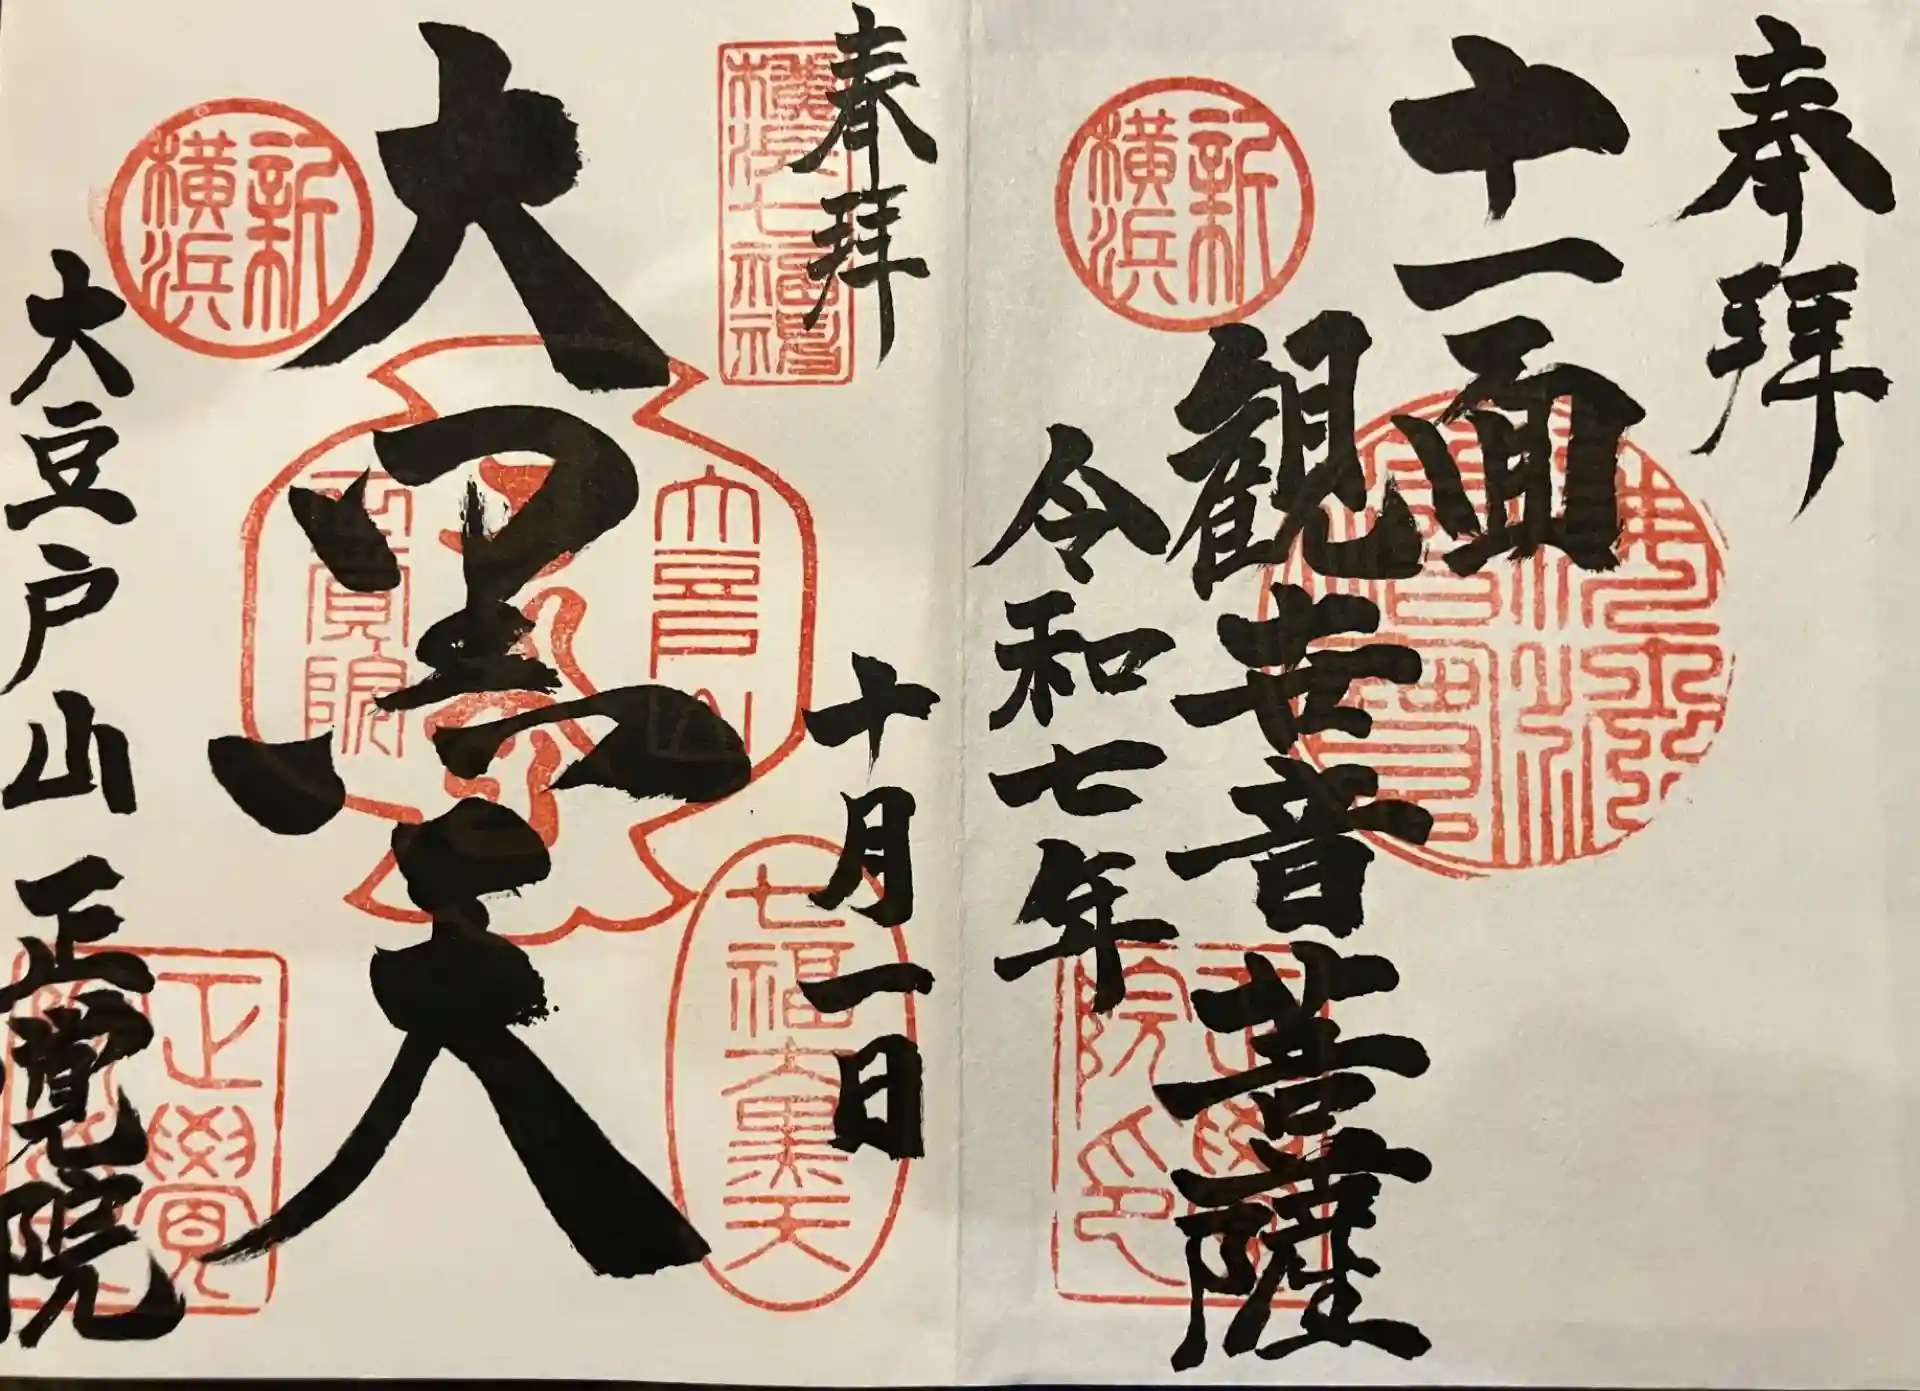 奉拝
十一面
観世音菩薩
新
横浜
令和七年
院
印
奉拝
横浜七福神
十月一日
七福大黒天
大黒天
新
横浜
寳院
正覺
大豆戸山
正覚院